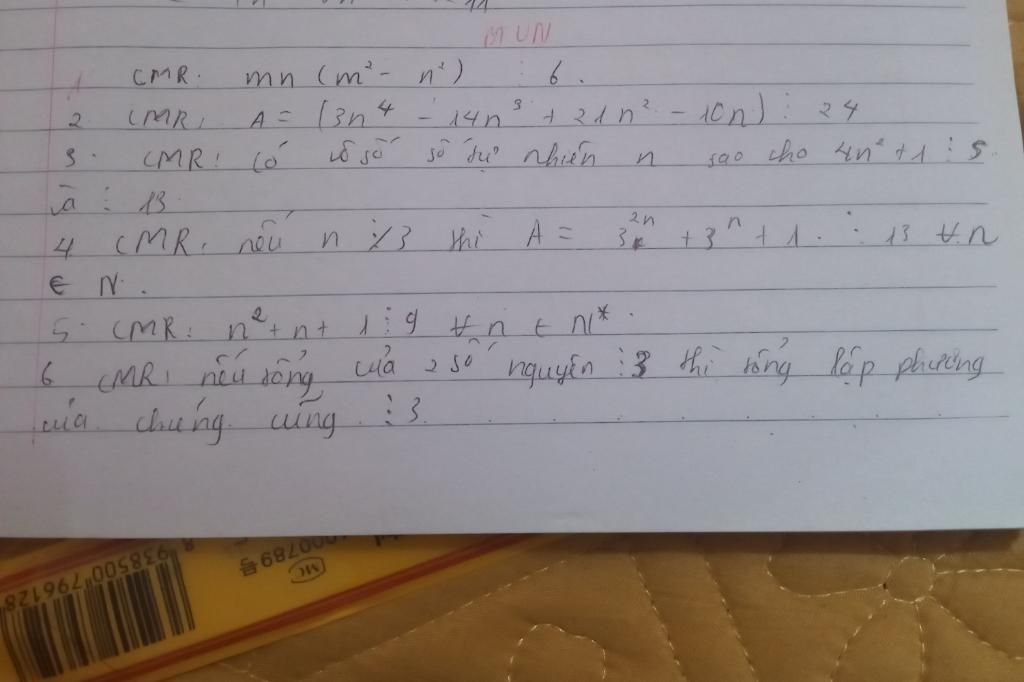 BTVN
1 CMR: mn (m² - n²) ⋮ 6.
2. CMR: A = (3n⁴ - 14n³ + 21n² - 10n) ⋮ 24
3. CMR: Có vô số số tự nhiên n sao cho 4n² + 1 ⋮ 5
và ⋮ 13
4 CMR: nếu n ⋮̸ 3 thì A = 3²ⁿ + 3ⁿ + 1 ⋮ 13 ∀n
∈ N.
5. CMR: n² + n + 1 ⋮ 9 ∀n ∈ N*.
6 CMR: nếu tổng của 2 số nguyên ⋮ 3 thì tổng lập phương
của chúng cũng ⋮ 3.
000789号
MC
8 938500 796128